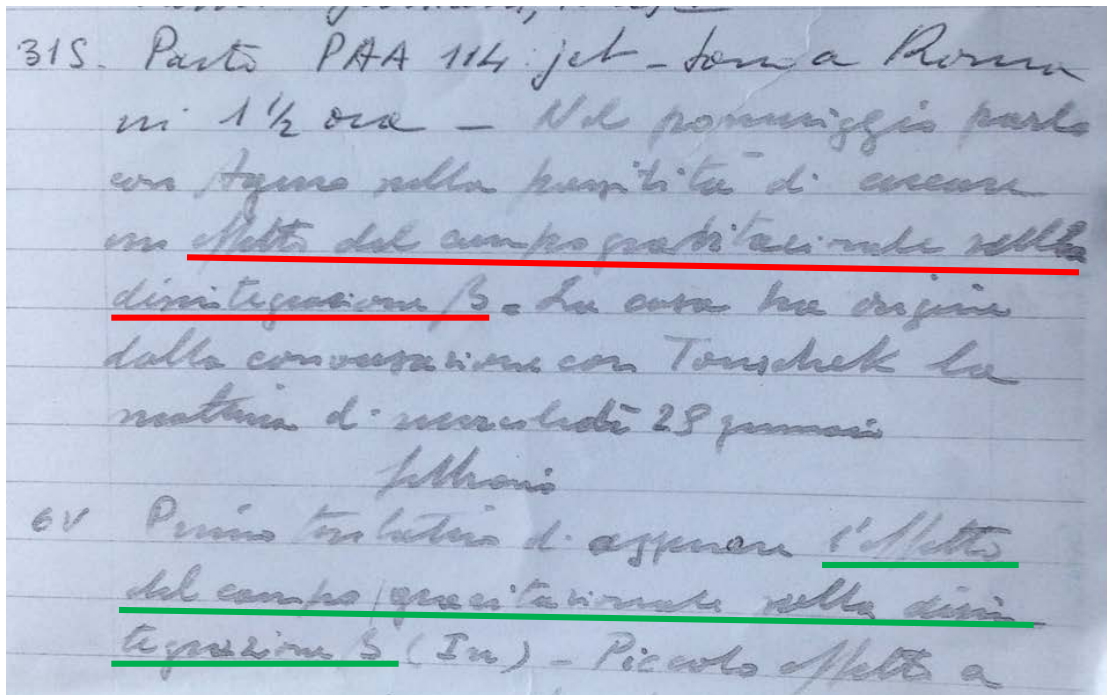 31S. Parto PAA 114 jet – torno a Roma
in 1½ ora – Nel pomeriggio parlo
con Ageno sulla possibilità di cercare
un effetto del campo gravitazionale sulla
disintegrazione β – La cosa ha origine
dalla conversazione con Touschek la
mattina di mercoledì 28 gennaio
febbraio
6V Primo tentativo di osservare l'effetto
del campo gravitazionale sulla disin-
tegrazione β (In) – Piccolo effetto a